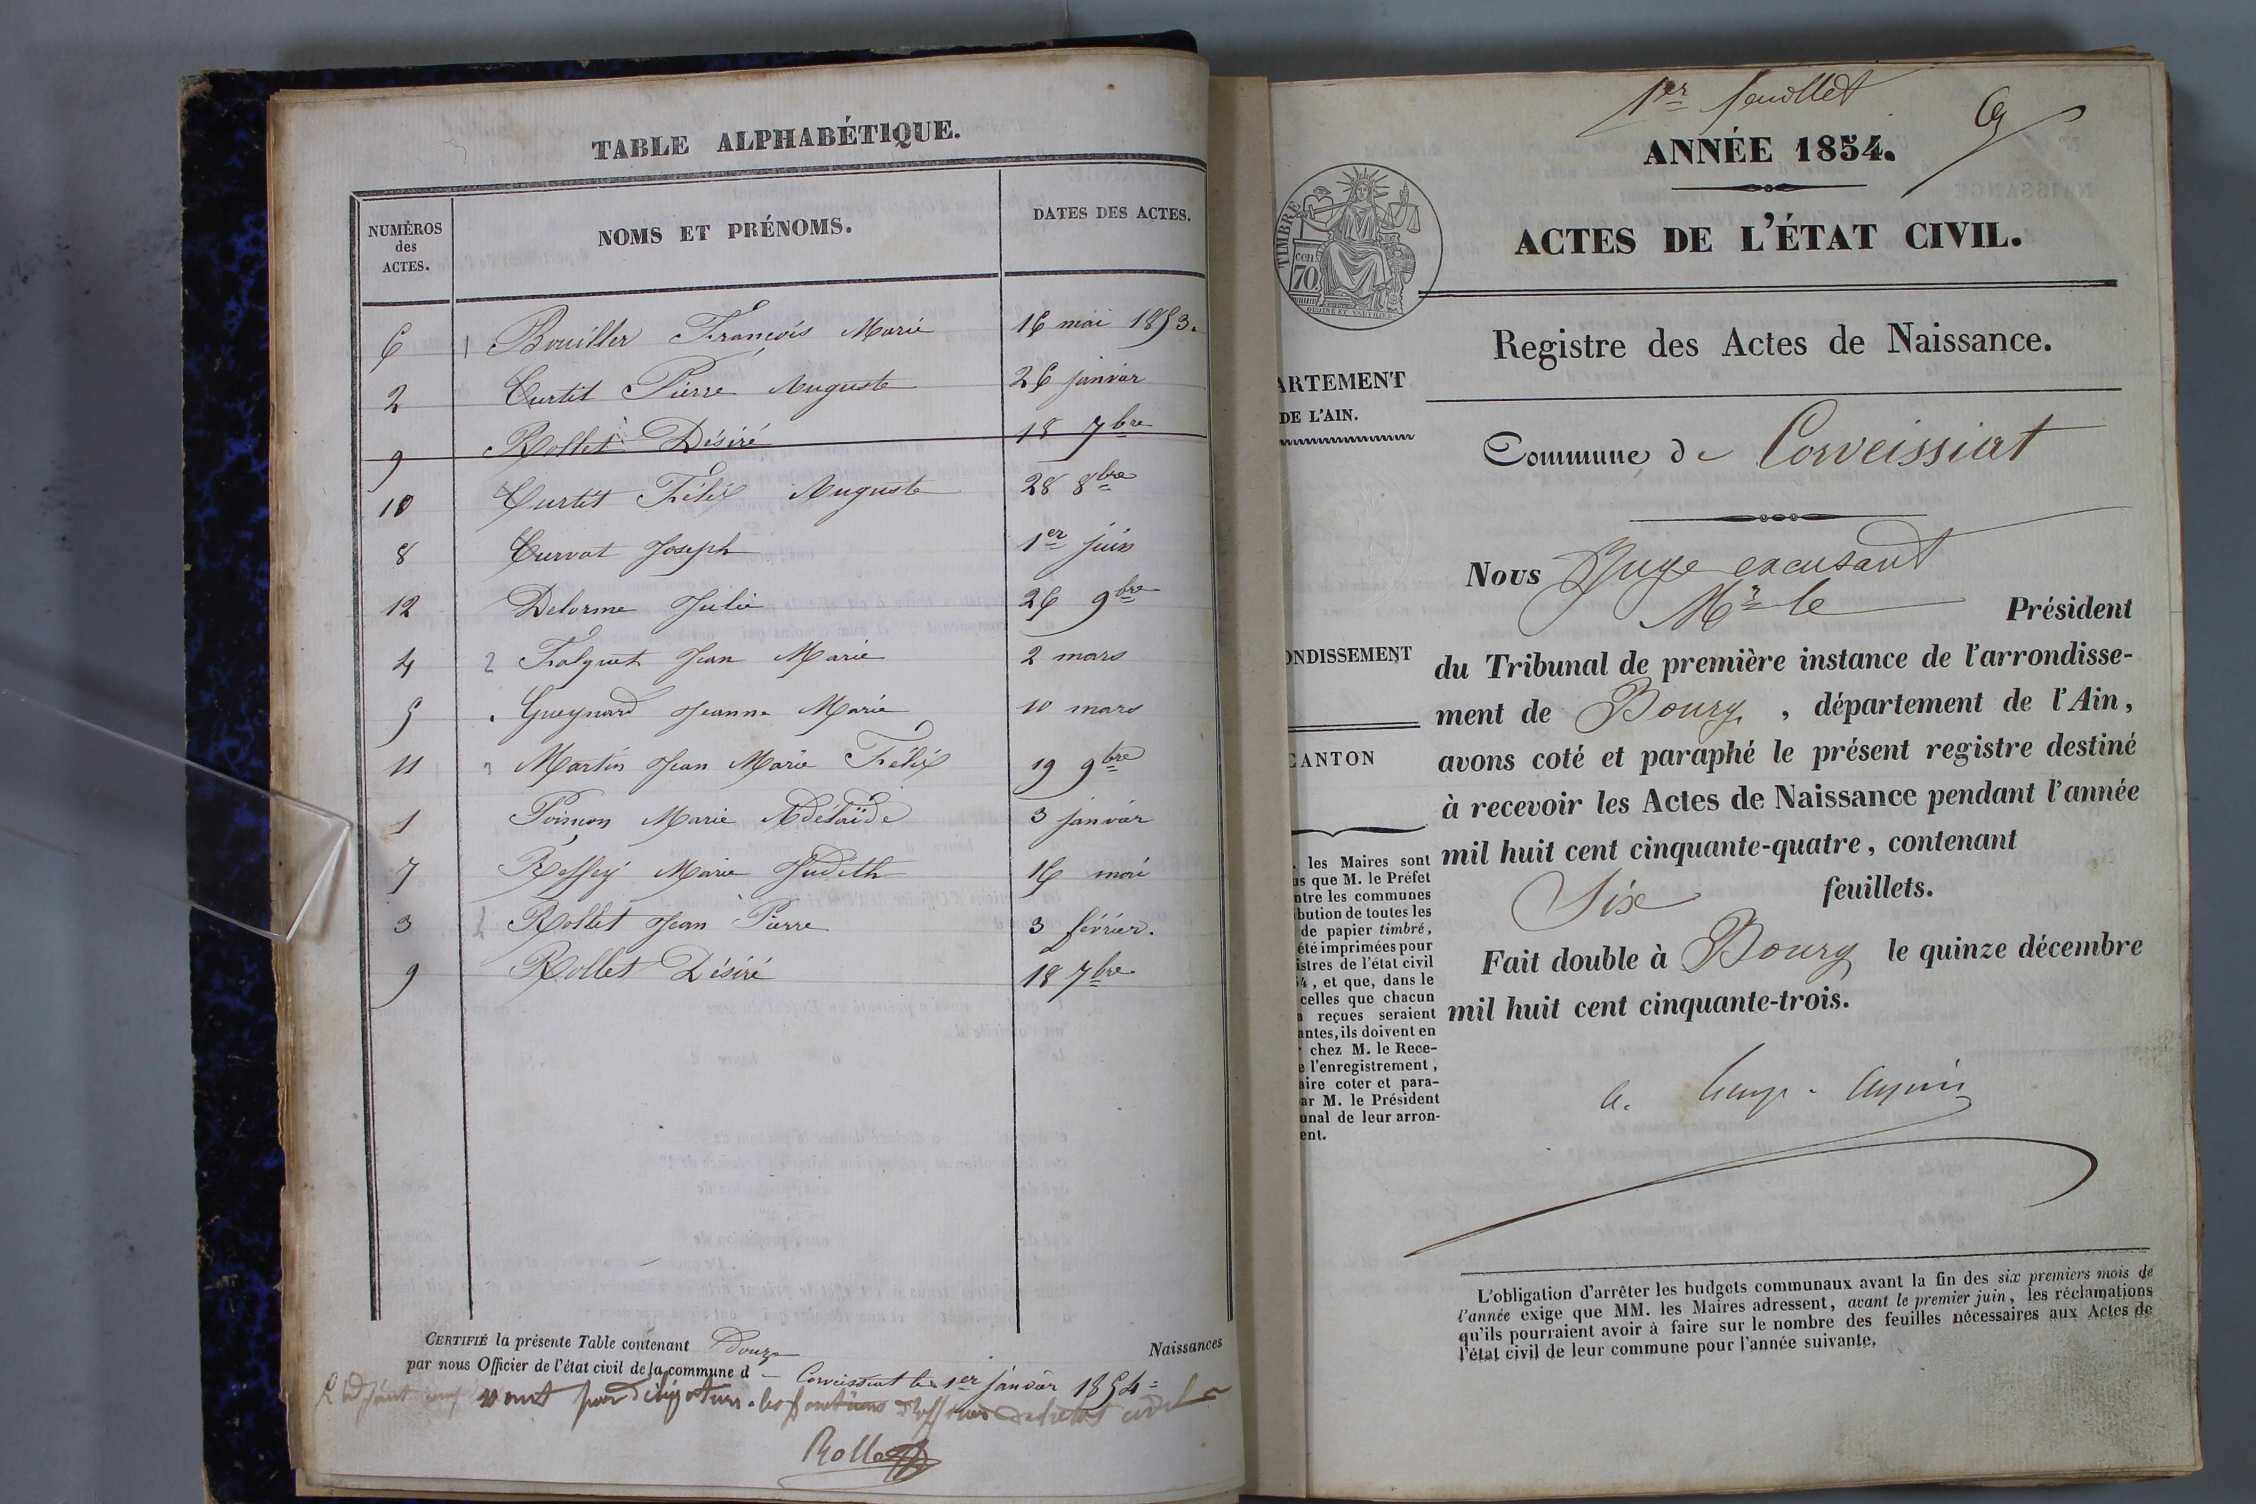 TABLE ALPHABÉTIQUE.
NUMÉROS
des
ACTES.
NOMS ET PRÉNOMS.
DATES DES ACTES.
6 1 Bouiller François Marie 16 mai 1853.
2 Curtit Pierre Auguste 26 janvier
9 Rollet Désiré 18 7bre
10 Curtit Félix Auguste 28 8bre
8 Curvat Joseph 1er juin
12 Delorme Julie 26 9bre
4 2 Falquet Jean Marie 2 mars
5 Gueynard Jeanne Marie 10 mars
11 3 Martin Jean Marie Félix 19 9bre
1 Marie Adélaïde 3 janvier
7 Marie Judith 16 mai
3 Rollet Jean Pierre 3 février.
9 Rollet Désiré 18 7bre
CERTIFIÉ la présente Table contenant Douze Naissances
par nous Officier de l'état civil de la commune d Corveissiat le 1er janvier 1854
L'adjoint par délégation les fonctions
Rollet
1er feuillet
ANNÉE 1854.
ACTES DE L'ÉTAT CIVIL.
TIMBRE
70
Registre des Actes de Naissance.
ARTEMENT
DE L'AIN.
Commune de Corveissiat
Nous Juge excusant
Mr le Président
ONDISSEMENT
du Tribunal de première instance de l'arrondisse-
ment de Bourg, département de l'Ain,
avons coté et paraphé le présent registre destiné
CANTON
à recevoir les Actes de Naissance pendant l'année
mil huit cent cinquante-quatre, contenant
Six feuillets.
Fait double à Bourg le quinze décembre
mil huit cent cinquante-trois.
les Maires sont
us que M. le Préfet
ntre les communes
bution de toutes les
de papier timbré,
été imprimées pour
istres de l'état civil
54, et que, dans le
celles que chacun
a reçues seraient
antes, ils doivent en
r chez M. le Rece-
e l'enregistrement,
aire coter et para-
ar M. le Président
unal de leur arron-
ent.
L'obligation d'arrêter les budgets communaux avant la fin des six premiers mois de
l'année exige que MM. les Maires adressent, avant le premier juin, les réclamations
qu'ils pourraient avoir à faire sur le nombre des feuilles nécessaires aux Actes de
l'état civil de leur commune pour l'année suivante.